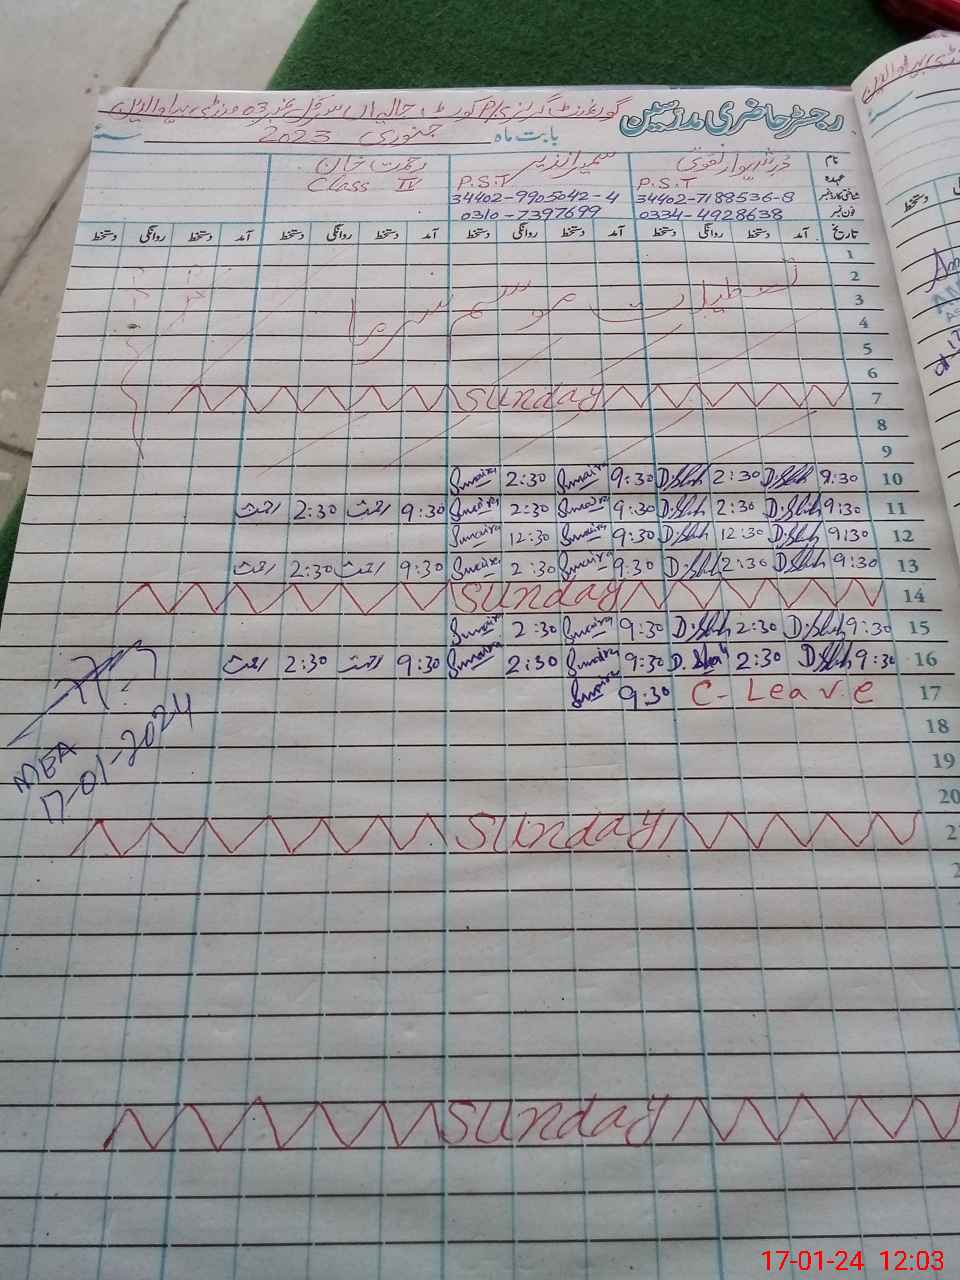 رجسٹر حاضری مدرسین
بابت ماہ جنوری 2023
نام
سمیرا نذیر رحمت خان
عہدہ P.S.T P.S.T Class IV
شناختی کارڈ نمبر 34402-7188536-8 34402-9905042-4
فون نمبر 0334-4928638 0310-7397699
تاریخ آمد دستخط روانگی دستخط آمد دستخط روانگی دستخط آمد دستخط روانگی دستخط آمد دستخط روانگی دستخط
1
2
تعطیلات موسم سرما
3
4
5
6
7 Sunday
8
9
10 9:30 D.Shah 2:30 D.Shah 9:30 Sumaira 2:30 Sumaira
11 9:30 D.Shah 2:30 D.Shah 9:30 Sumaira 2:30 Sumaira 9:30 رحمت 2:30 رحمت
12 9:30 D.Shah 12:30 D.Shah 9:30 Sumaira 12:30 Sumaira
13 9:30 D.Shah 2:30 D.Shah 9:30 Sumaira 2:30 Sumaira 9:30 رحمت 2:30 رحمت
14 Sunday
15 9:30 D.Shah 2:30 D.Shah 9:30 Sumaira 2:30 Sumaira
16 9:30 D.Shah 2:30 D.Shah 9:30 Sumaira 2:30 Sumaira 9:30 رحمت 2:30 رحمت
17 C-Leave 9:30 Sumaira
MEA
17-01-2024
18
19
20
Sunday
Sunday
17-01-24 12:03